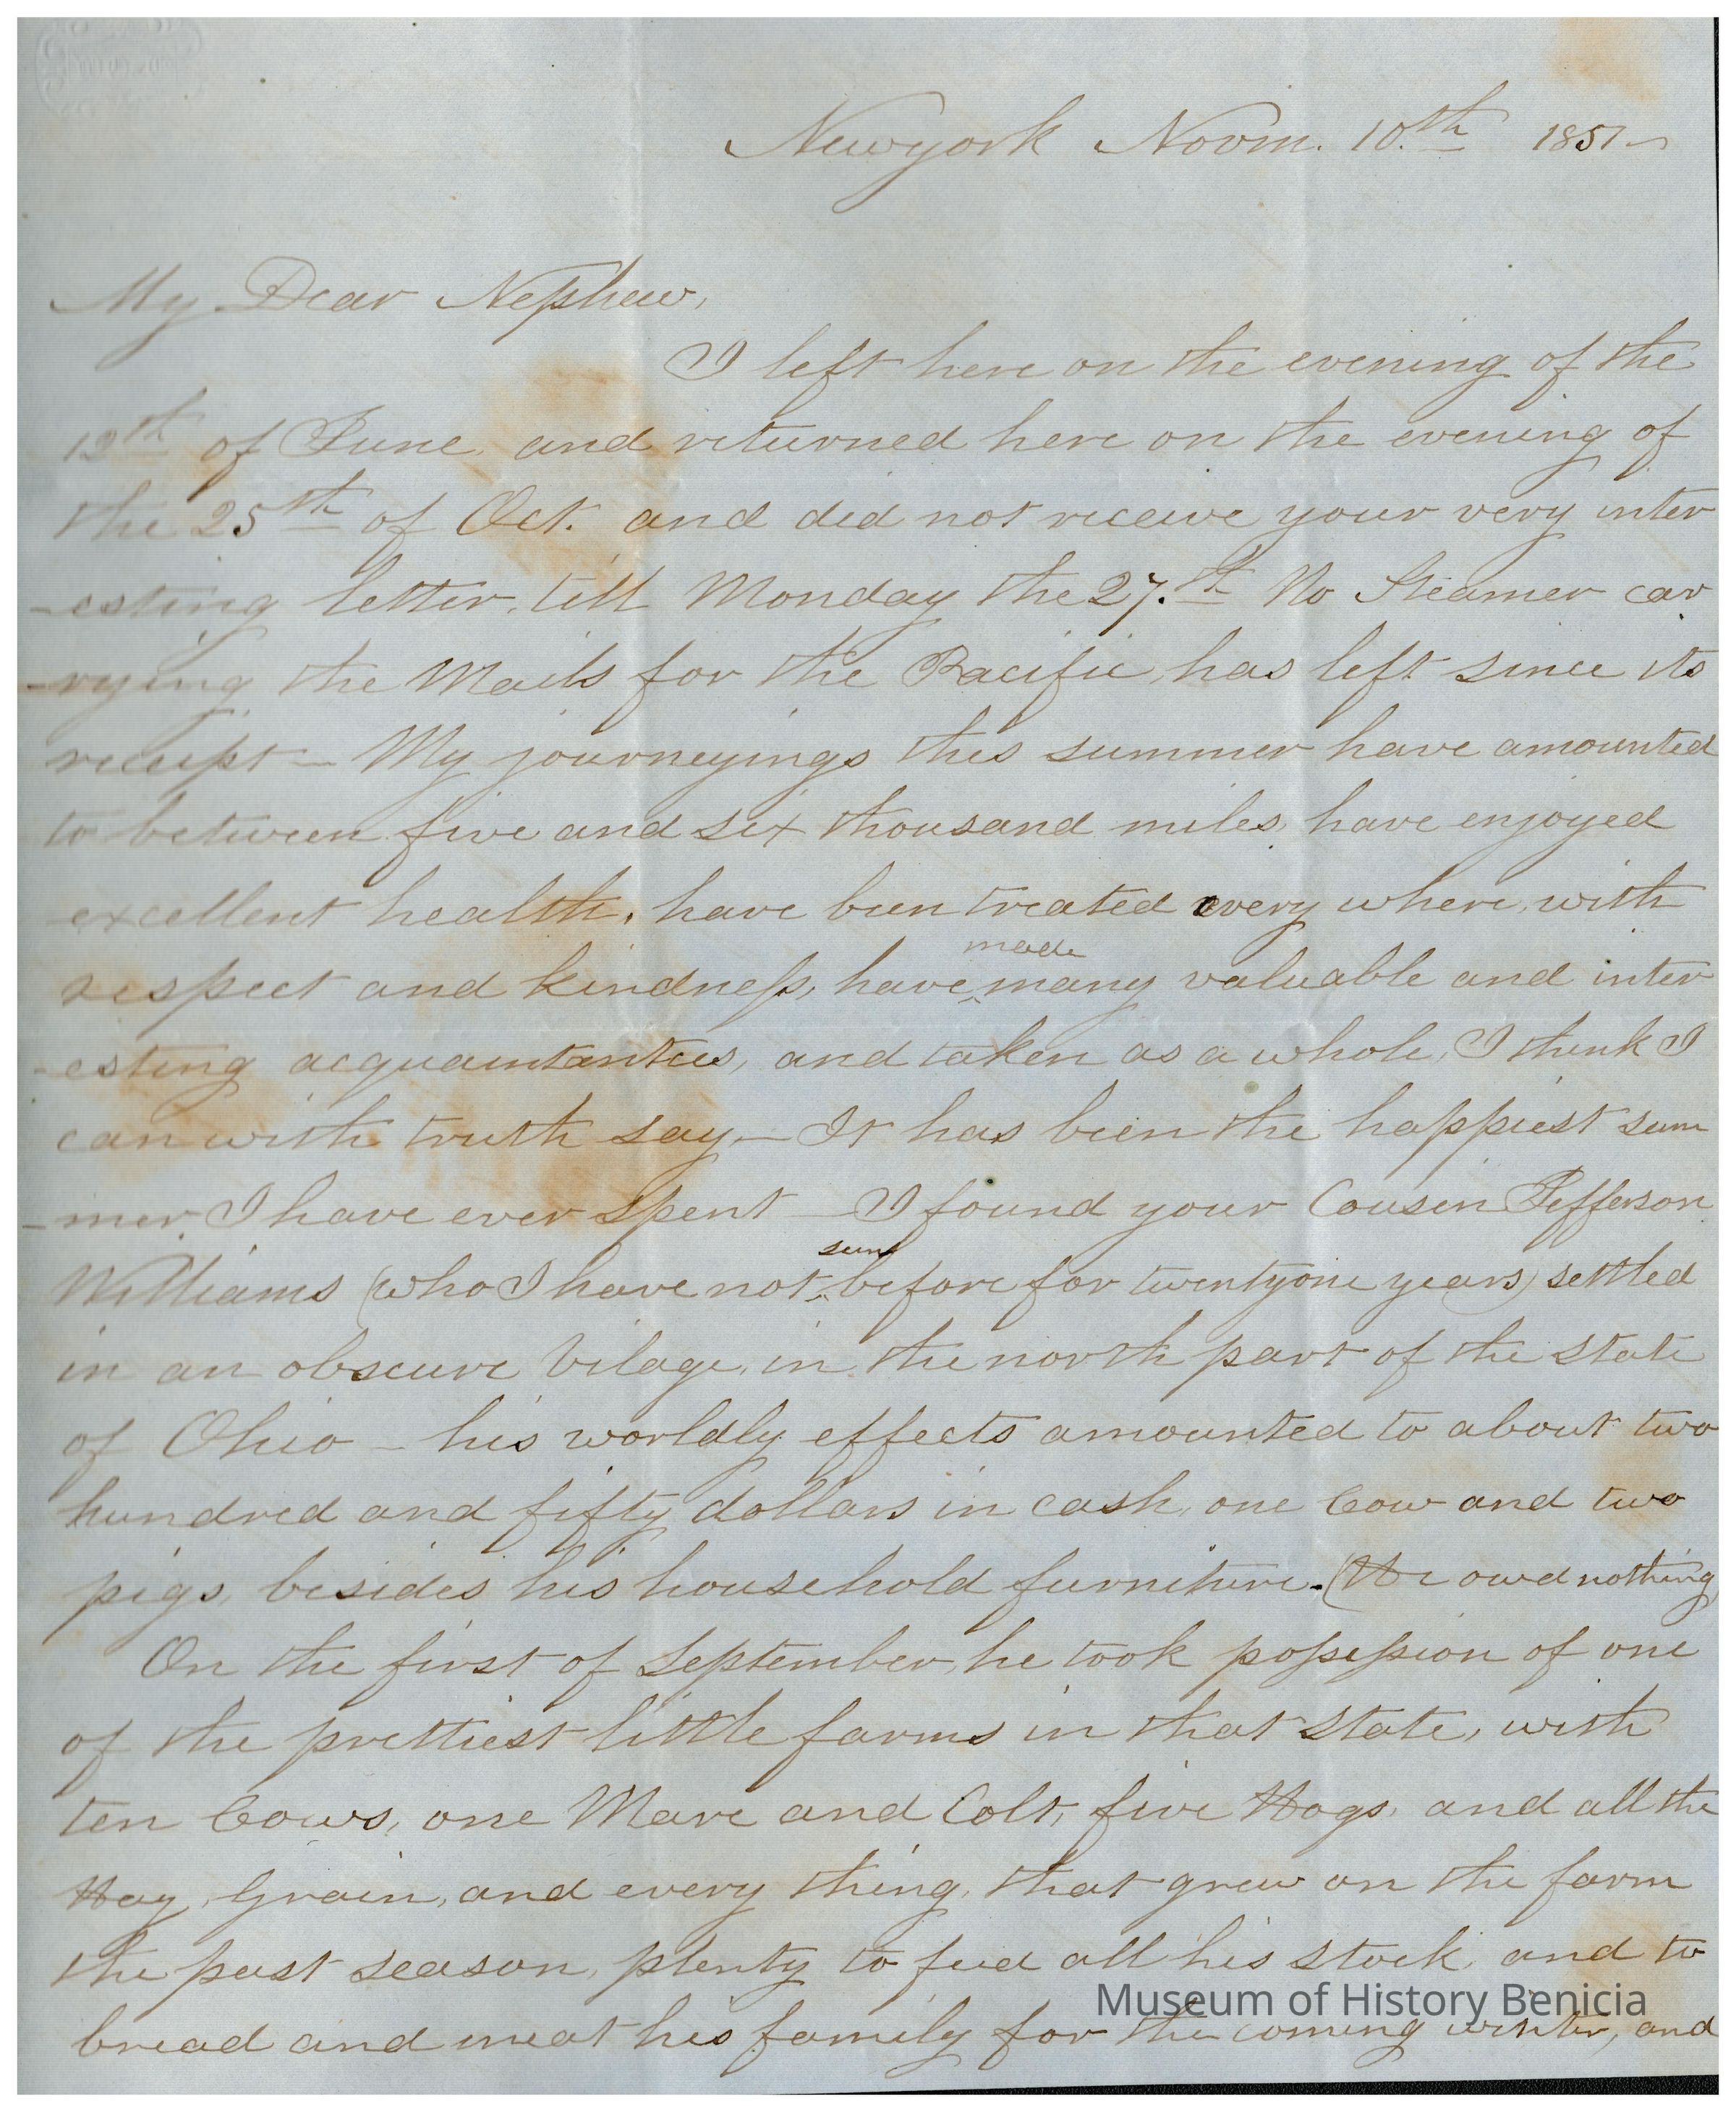 Newyork Novm. 10.th 1851
My Dear Nephew,
I left here on the evening of the
of June, and returned here on the evening of
the 25th of Oct. and did not receive your very inter
-esting letter, till Monday the 27.th No Steamer car
-rying the Mails for the Pacific, has left since its
receipt - My journeyings this summer have amounted
to between five and six thousand miles, have enjoyed
excellent health, have been treated every where, with
made
respect and kindness, have many valuable and inter
-esting acquaintances, and taken as a whole, I think I
can with truth say - It has been the happiest sum
-mer I have ever spent - I found your Cousin Jefferson
seen
Williams (who I have not before for twentyone years) settled
in an obscure Vilage, in the north part of the state
of Ohio - his worldly effects amounted to about two
hundred and fifty dollars in cash, one Cow and two
pigs, besides his household furniture. (He owed nothing)
On the first of September, he took possession of one
of the prettiest little farms in that state, with
ten Cows, one Mare and Colt, five Hogs, and all the
Hay, Grain, and every thing, that grew on the farm
the past season, plenty to feed all his stock, and to
bread and meat his family for the coming winter, and
Museum of History Benicia